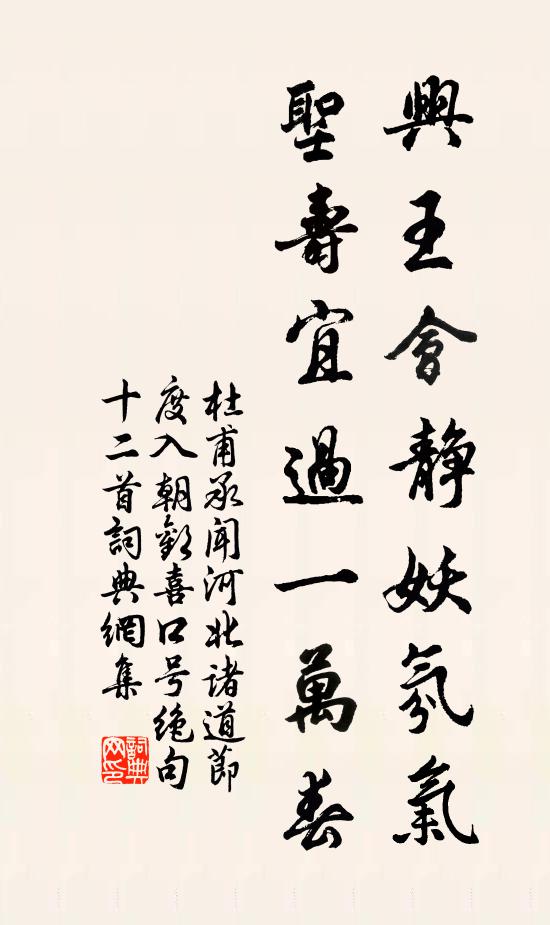 興王會靜妖氛氣
聖壽宜過一萬春
杜甫承聞河北諸道節
度入朝歡喜口号絶句
十二首詞典網集
詞典网印